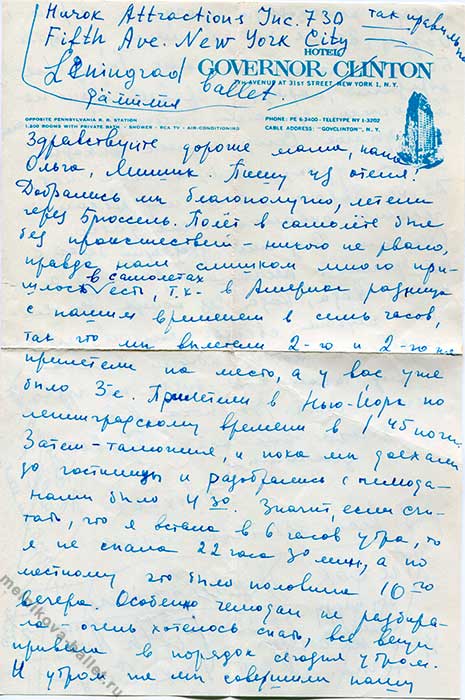 Hurok Attractions Inc. 730
так правильно
Fifth Ave. New York City
Leningrad ballet.
фамилия
HOTEL
GOVERNOR CLINTON
7th AVENUE AT 31st STREET, NEW YORK 1, N.Y.
OPPOSITE PENNSYLVANIA R. R. STATION
1,200 ROOMS WITH PRIVATE BATH - SHOWER - RCA TV - AIR-CONDITIONING
PHONE: PE 6-3400 - TELETYPE NY 1-3202
CABLE ADDRESS: "GOVCLINTON", N. Y.
Здравствуйте дорогие мама, папа
Ольга, Мишик. Пишу из отеля!
Добрались мы благополучно, летели
через Брюссель. Полёт в самолёте был
без происшествий - никого не рвало,
правда нам слишком много при-
в самолетах
шлось есть, т.к. в Америке разница
с нашим временем в семь часов,
так что мы вылетели 2-го и 2-го же
прилетели на место, а у вас уже
было 3-е. Прилетели в Нью-Йорк по
ленинградскому времени в 1 45 ночи.
Затем - таможня, и пока мы доехали
до гостиницы и разобрались с чемода-
нами было 4 30. Значит, если счи-
тать, что я встала в 6 часов утра, то
я не спала 22 часа 30 мин, а по
местному это было половина 10го
вечера. Особенно чемодан не разбира-
ла - очень хотелось спать, все вещи
привела в порядок сегодня утром.
И утром же мы совершили нашу
melnikova-ballet.ru